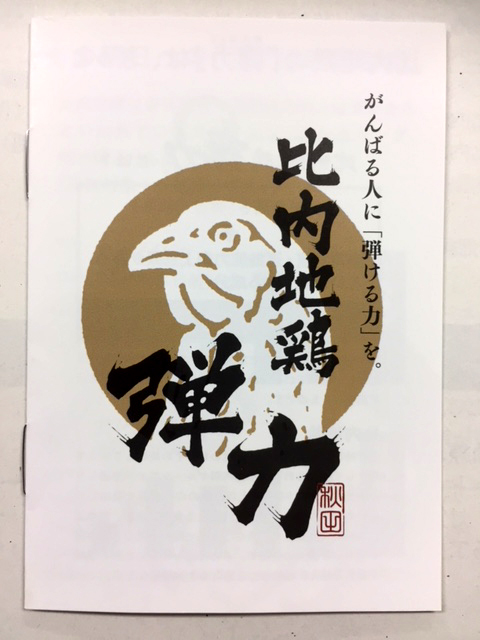 がんばる人に「弾ける力」を。
比内地鶏
弾力
秋田